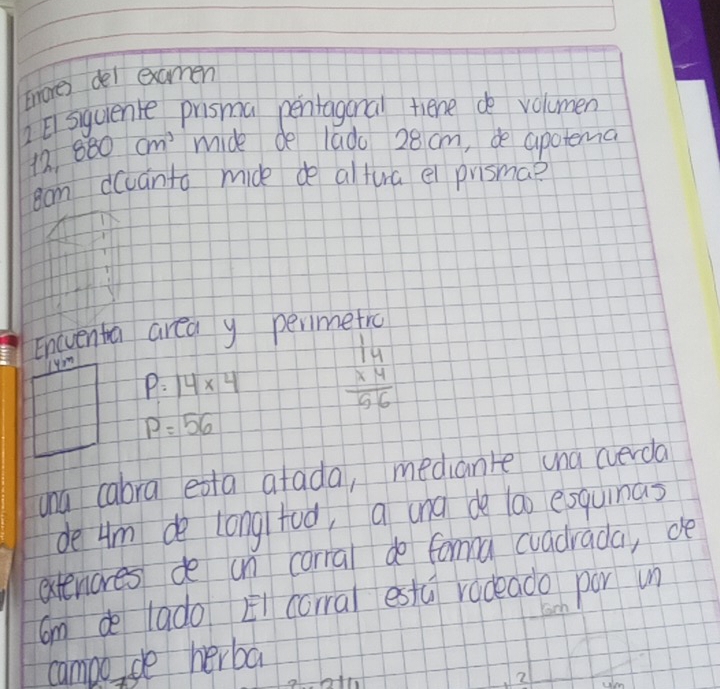 Errores del examen
2 El siguiente prisma pentagonal tiene de volumen
12,880 cm³ mide de lado 28cm, de apotema
8cm ¿cuánto mide de altura el prisma?
Encuentra area y perimetro
14m
P=14x4
P=56
14
x4
56
una cabra esta atada, mediante una cuerda
de 4m de longitud, a una de las esquinas
exteriores de un corral de forma cuadrada, de
6m de lado El corral está rodeado por un
campo de herba